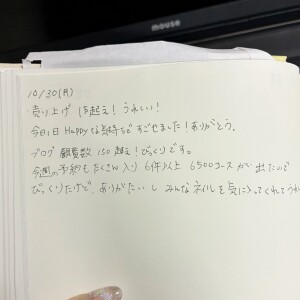 mouse
10/30(月)
売り上げ 1万超え! うれしい!
今日1日 Happyな気持ちですごせました!ありがとう。
ブログ 観覧数 150 超え!びっくりです。
今週の予約もたくさん入り 6件以上 6500コースが出たので
びっくりだけど、ありがたいし みんなネイルを気に入ってくれてうれ